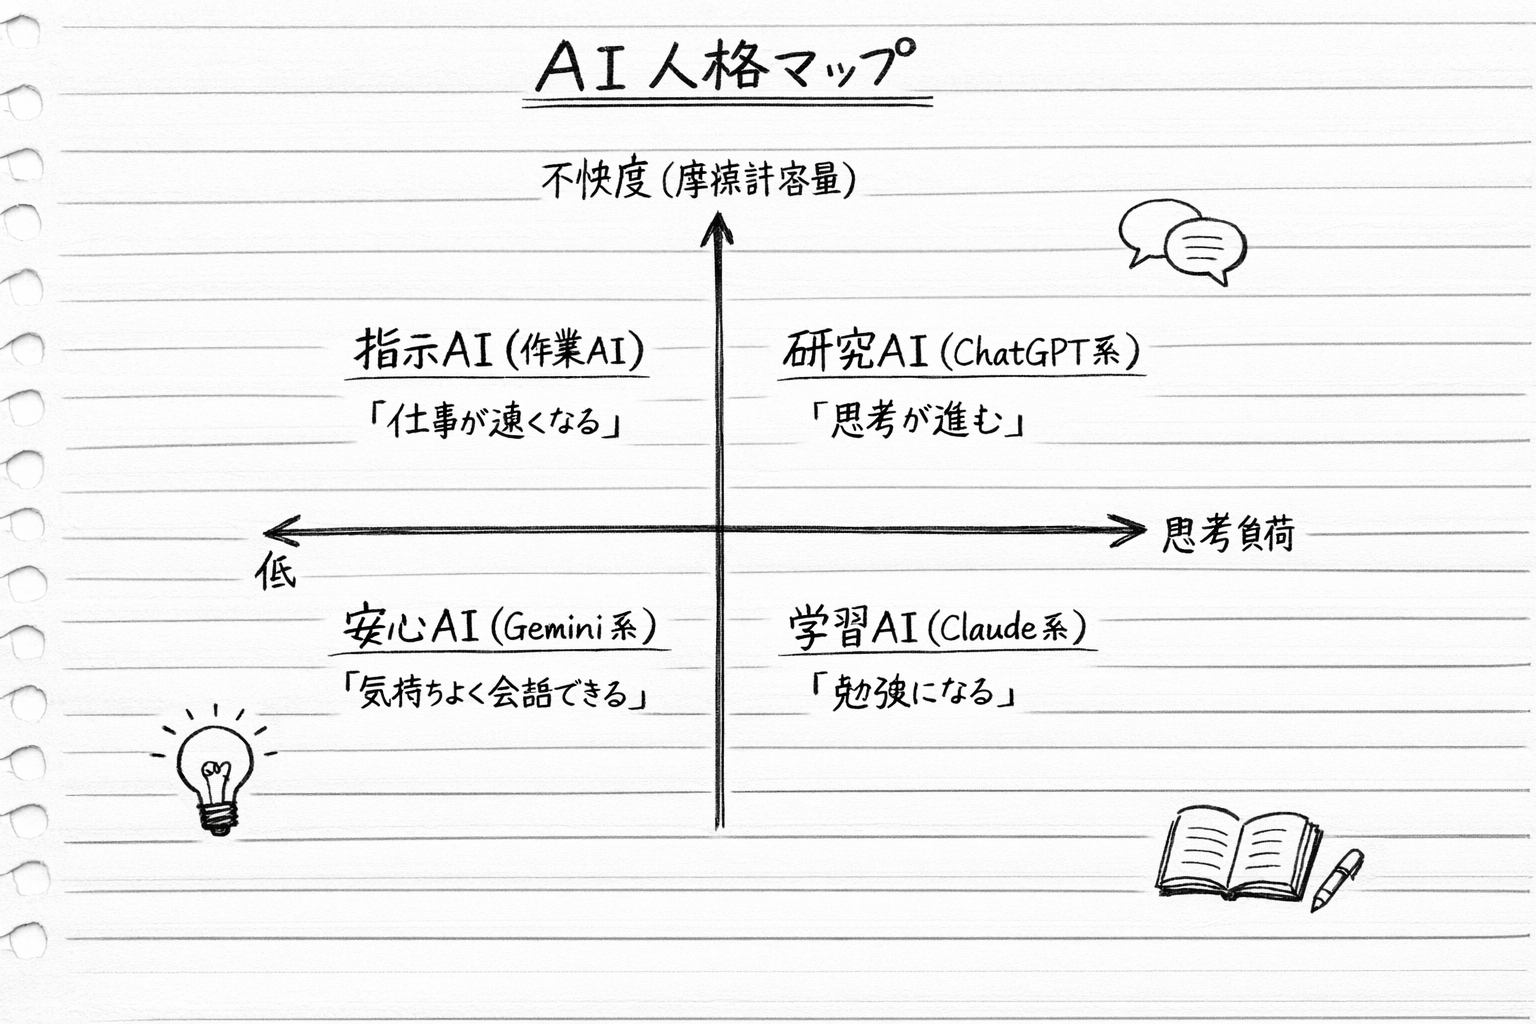 AI 人格マップ
不快度 (摩擦許容量)
指示AI (作業AI)
「仕事が速くなる」
研究AI (ChatGPT系)
「思考が進む」
思考負荷
低
安心AI (Gemini系)
「気持ちよく会話できる」
学習AI (Claude系)
「勉強になる」